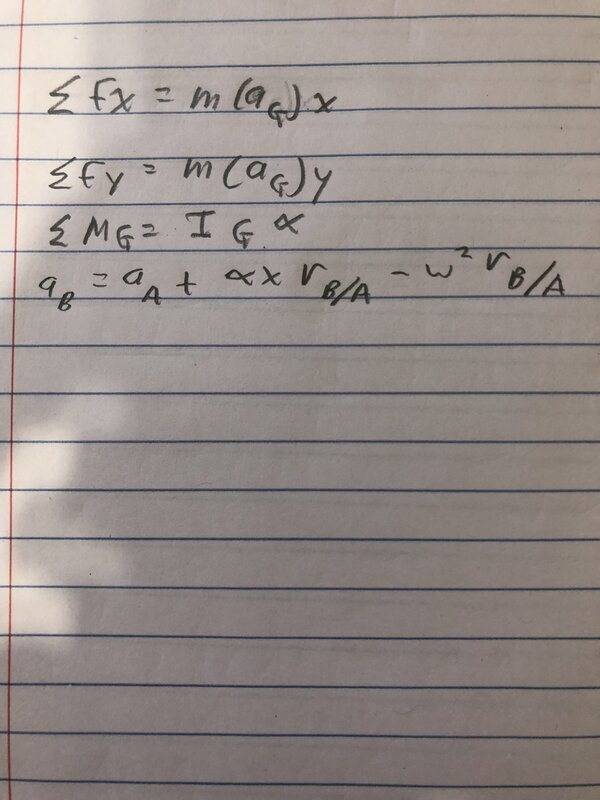 Σ Fx = m(a_G)x
ΣFy = m(a_G)y
Σ M_G = I_G α
a_B = a_A + α x r_B/A - ω² r_B/A